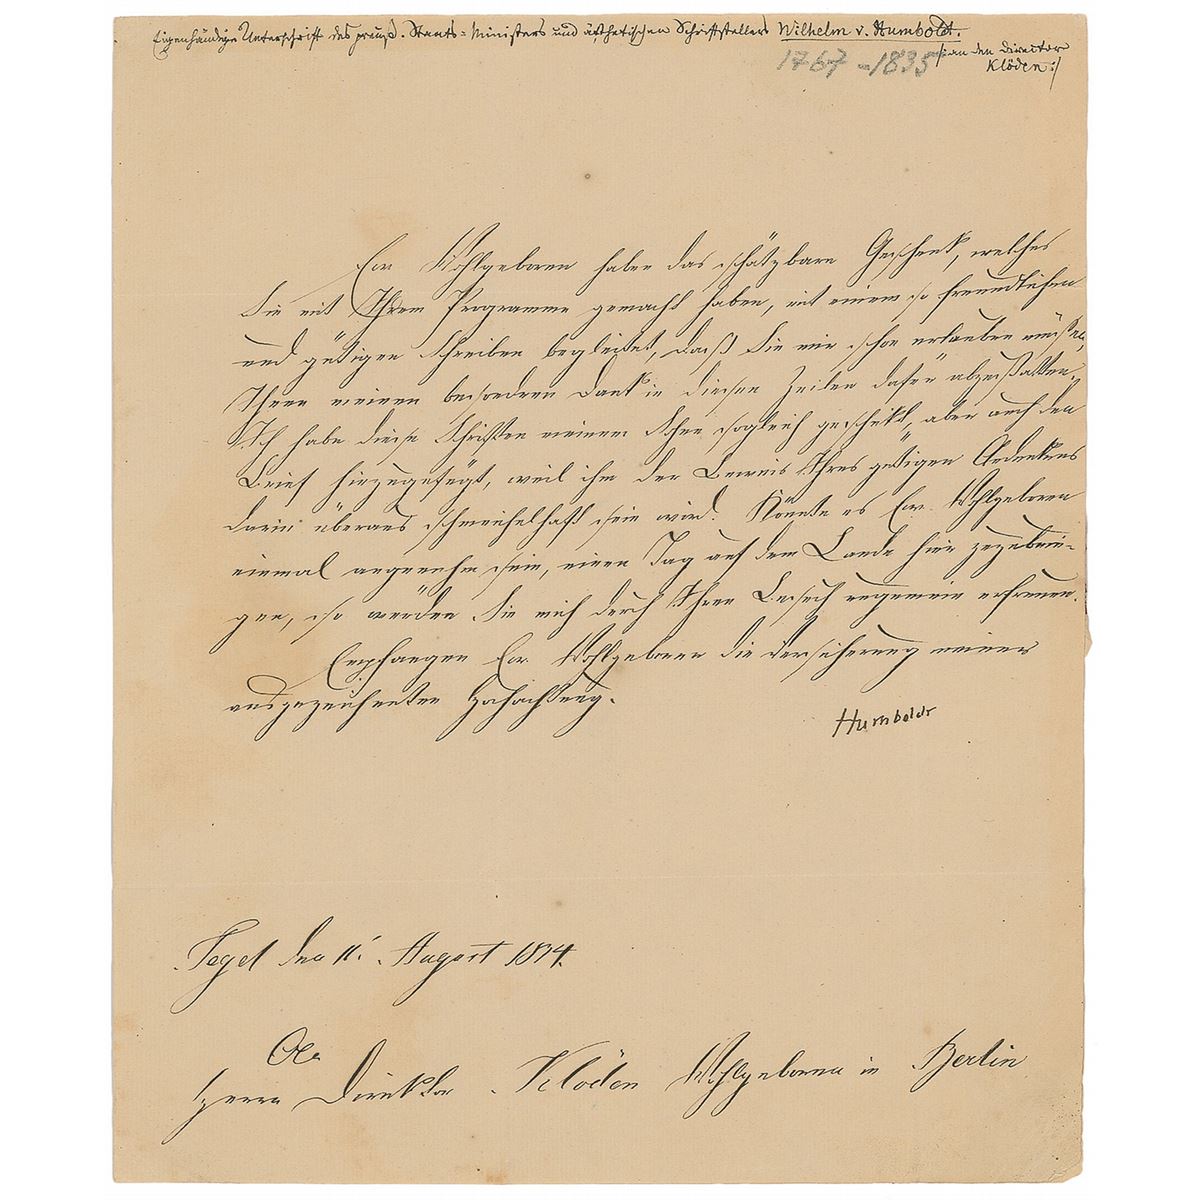 Eigenhändige Unterschrift des preuß. Staats-Ministers und ästhetischen Schriftstellers Wilhelm v. Humboldt.
/: an den Director
Klöden :/
1767-1835
Ew. Wohlgeboren haben das schätzbare Geschenk, welches
Sie mit Ihrem Programme gemacht haben, mit einem so freundlichen
und gütigen Schreiben begleitet, daß Sie mir schon erlauben müssen,
Ihnen meinen besondren Dank in diesen Zeilen dafür abzustatten.
Ich habe diese Schriften meinem sogleich geschikt, aber auch den
Brief hinzugefügt, weil ihm der Beweis Ihres gütigen Andenkens
darin überaus schmeichelhaft sein wird. Könnte es Ew. Wohlgeboren
einmal angenehm sein, einen Tag auf dem Lande hier zuzubrin-
gen, so würden Sie mich durch Ihren Besuch ungemein erfreuen.
Empfangen Ew. Wohlgeboren die Versicherung meiner
ausgezeichneten Hochachtung.
Humboldt
Tegel den 11. August 1834.
An
Herrn Direktor Klöden Wohlgeboren in Berlin